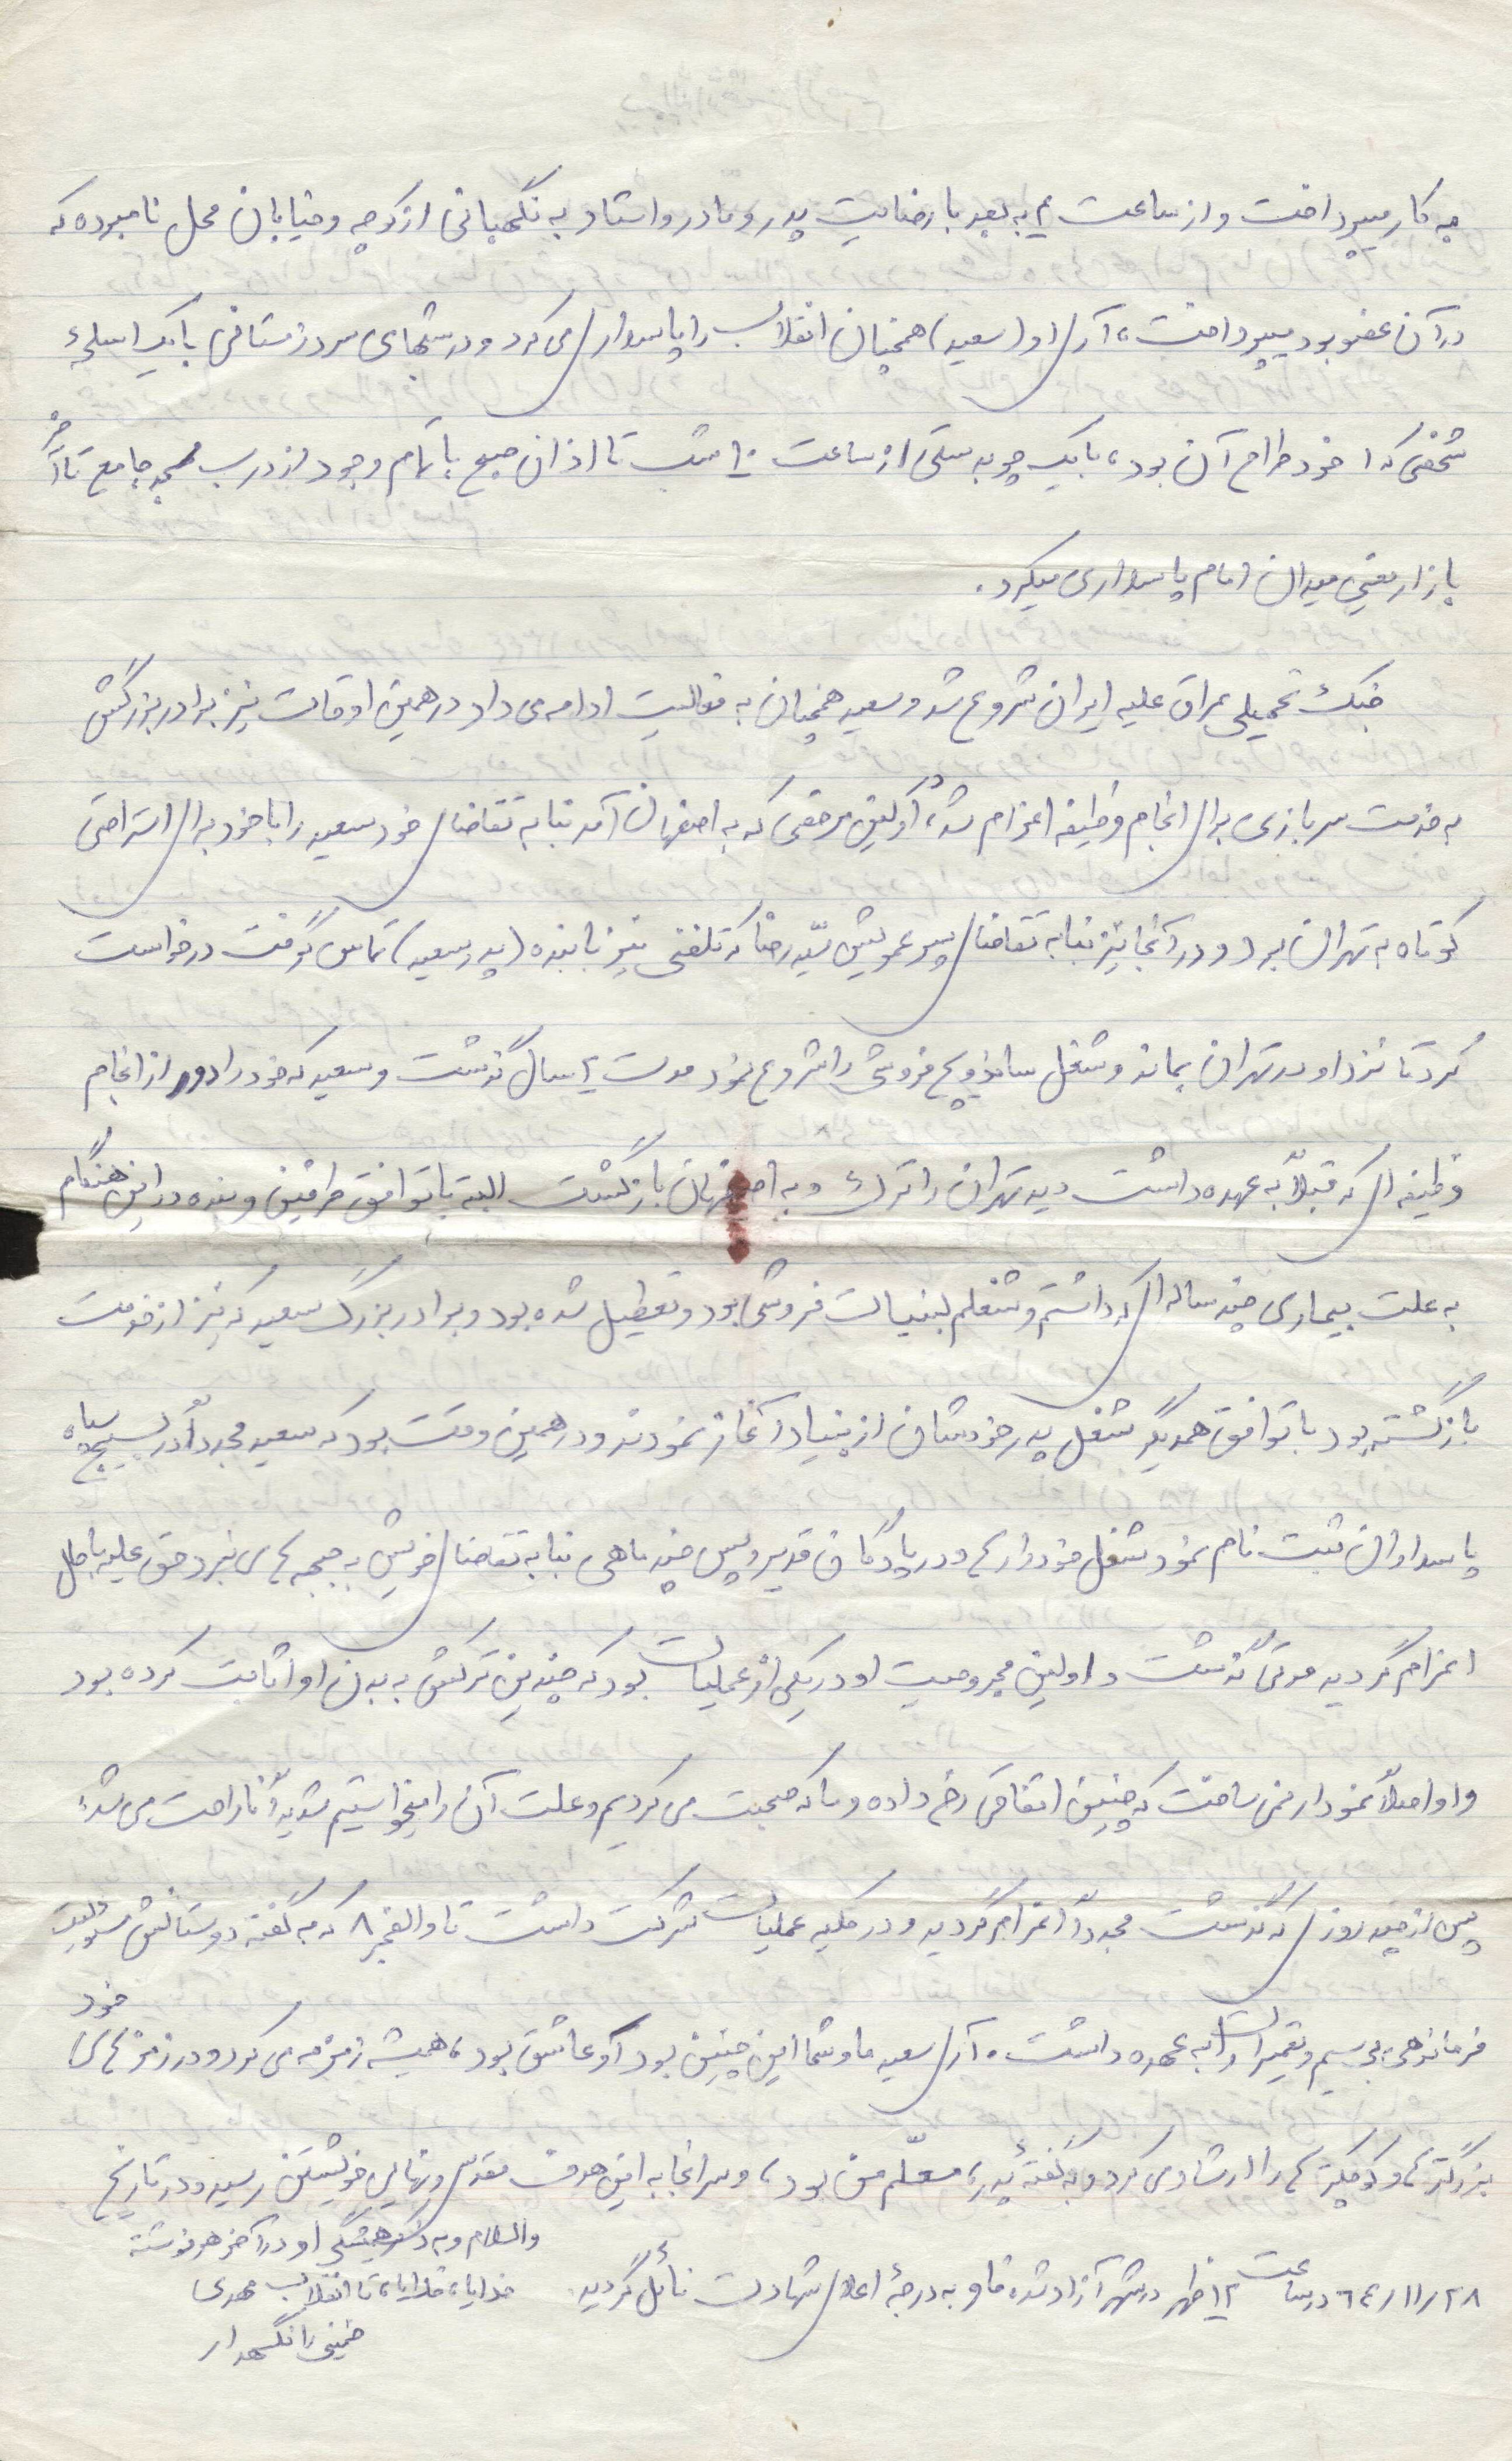 به کار میپرداخت و از ساعت ۴ به بعد با رضایت پدر و مادر و استاد به نگهبانی از کوچه و خیابان محل نامبرده که
در آن عضو بود میپرداخت، آری او (سعید) همچنان انقلاب را پاسداری می کرد و در شبهای سرد زمستانی با یک اسلحهٔ
شخصی که خود طراح آن بود، با یک چوبدستی از ساعت ۱۰ شب تا اذان صبح با تمام وجود از درب مسجد جامع تا آخر
بازار یعنی میدان امام پاسداری میکرد.
جنگ تحمیلی عراق علیه ایران شروع شد و سعید همچنان به فعالیت ادامه می داد در همین اوقات نیز برادر بزرگش
به خدمت سربازی برای انجام وظیفه اعزام شد، در اولین مرخصی که به اصفهان آمد بنا به تقاضای خود سعید را با خود برای استراحتی
کوتاه به تهران برد و در آنجا نیز بنا به تقاضای پسر عمویش سیّد رضا که تلفنی نیز با بنده (پدر سعید) تماس گرفت درخواست
کرد تا نزد او در تهران بماند و شغل ساندویچ فروشی را شروع نمود مدت ۲ سال گذشت و سعید که خود را دور از انجام
وظیفه ای که قبلاً به عهده داشت دید تهران را ترک و به اصفهان بازگشت البته با توافق طرفین و بنده در این هنگام
به علت بیماری چند ساله ای که داشتم و شغلم لبنیات فروشی بود و تعطیل شده بود و برادر بزرگ سعید که نیز از خدمت
بازگشته بود با توافق همدیگر شغل پدر خودشان از بنیاد آغاز نمودند و در همین وقت بود که سعید مجدداً در بسیج سپاه
پاسداران ثبت نام نمود شغل خود را رها و در پادگان غدیر و پس چند ماهی بنا به تقاضای خویش به جبهه های نبرد حق علیه باطل
اعزام گردید مدتی گذشت و اولین مجروحیت او در یکی از عملیات بود که چندین ترکش به بدن او اثابت کرده بود
و او اصلاً نمودار نمی ساخت که چنین اتفاقی رخ داده و ما که صحبت می کردیم و علت آن را میخواستیم شدیداً ناراحت می شد،
پس از چند روزی که گذشت مجدداً اعزام گردید و در کلیه عملیات شرکت داشت تا والفجر ۸ که به گفته دوستانش مسولیت
فرماندهی بی سیم و تعمیرات را به عهده داشت. آری سعید ما و شما این چنین بود او عاشق بود، همیشه زمزمه می کرد و در زمزمه های خود
بزرگترها و کوچکترها را ارشاد می کرد و به گفتهٔ پدر، معلّم من بود، و سرانجام به این هدف مقدس و نهایی خویشتن رسید و در تاریخ
۶۴/۱۱/۲۸ در ساعت ۱۲ ظهر در شهر آزاد شده فاو به درجهٔ اعلای شهادت نائل گردید.
والسلام و به ذکر همیشگی او در آخر هر نوشته
خدایا، خدایا، تا انقلاب مهدی
خمینی را نگهدار